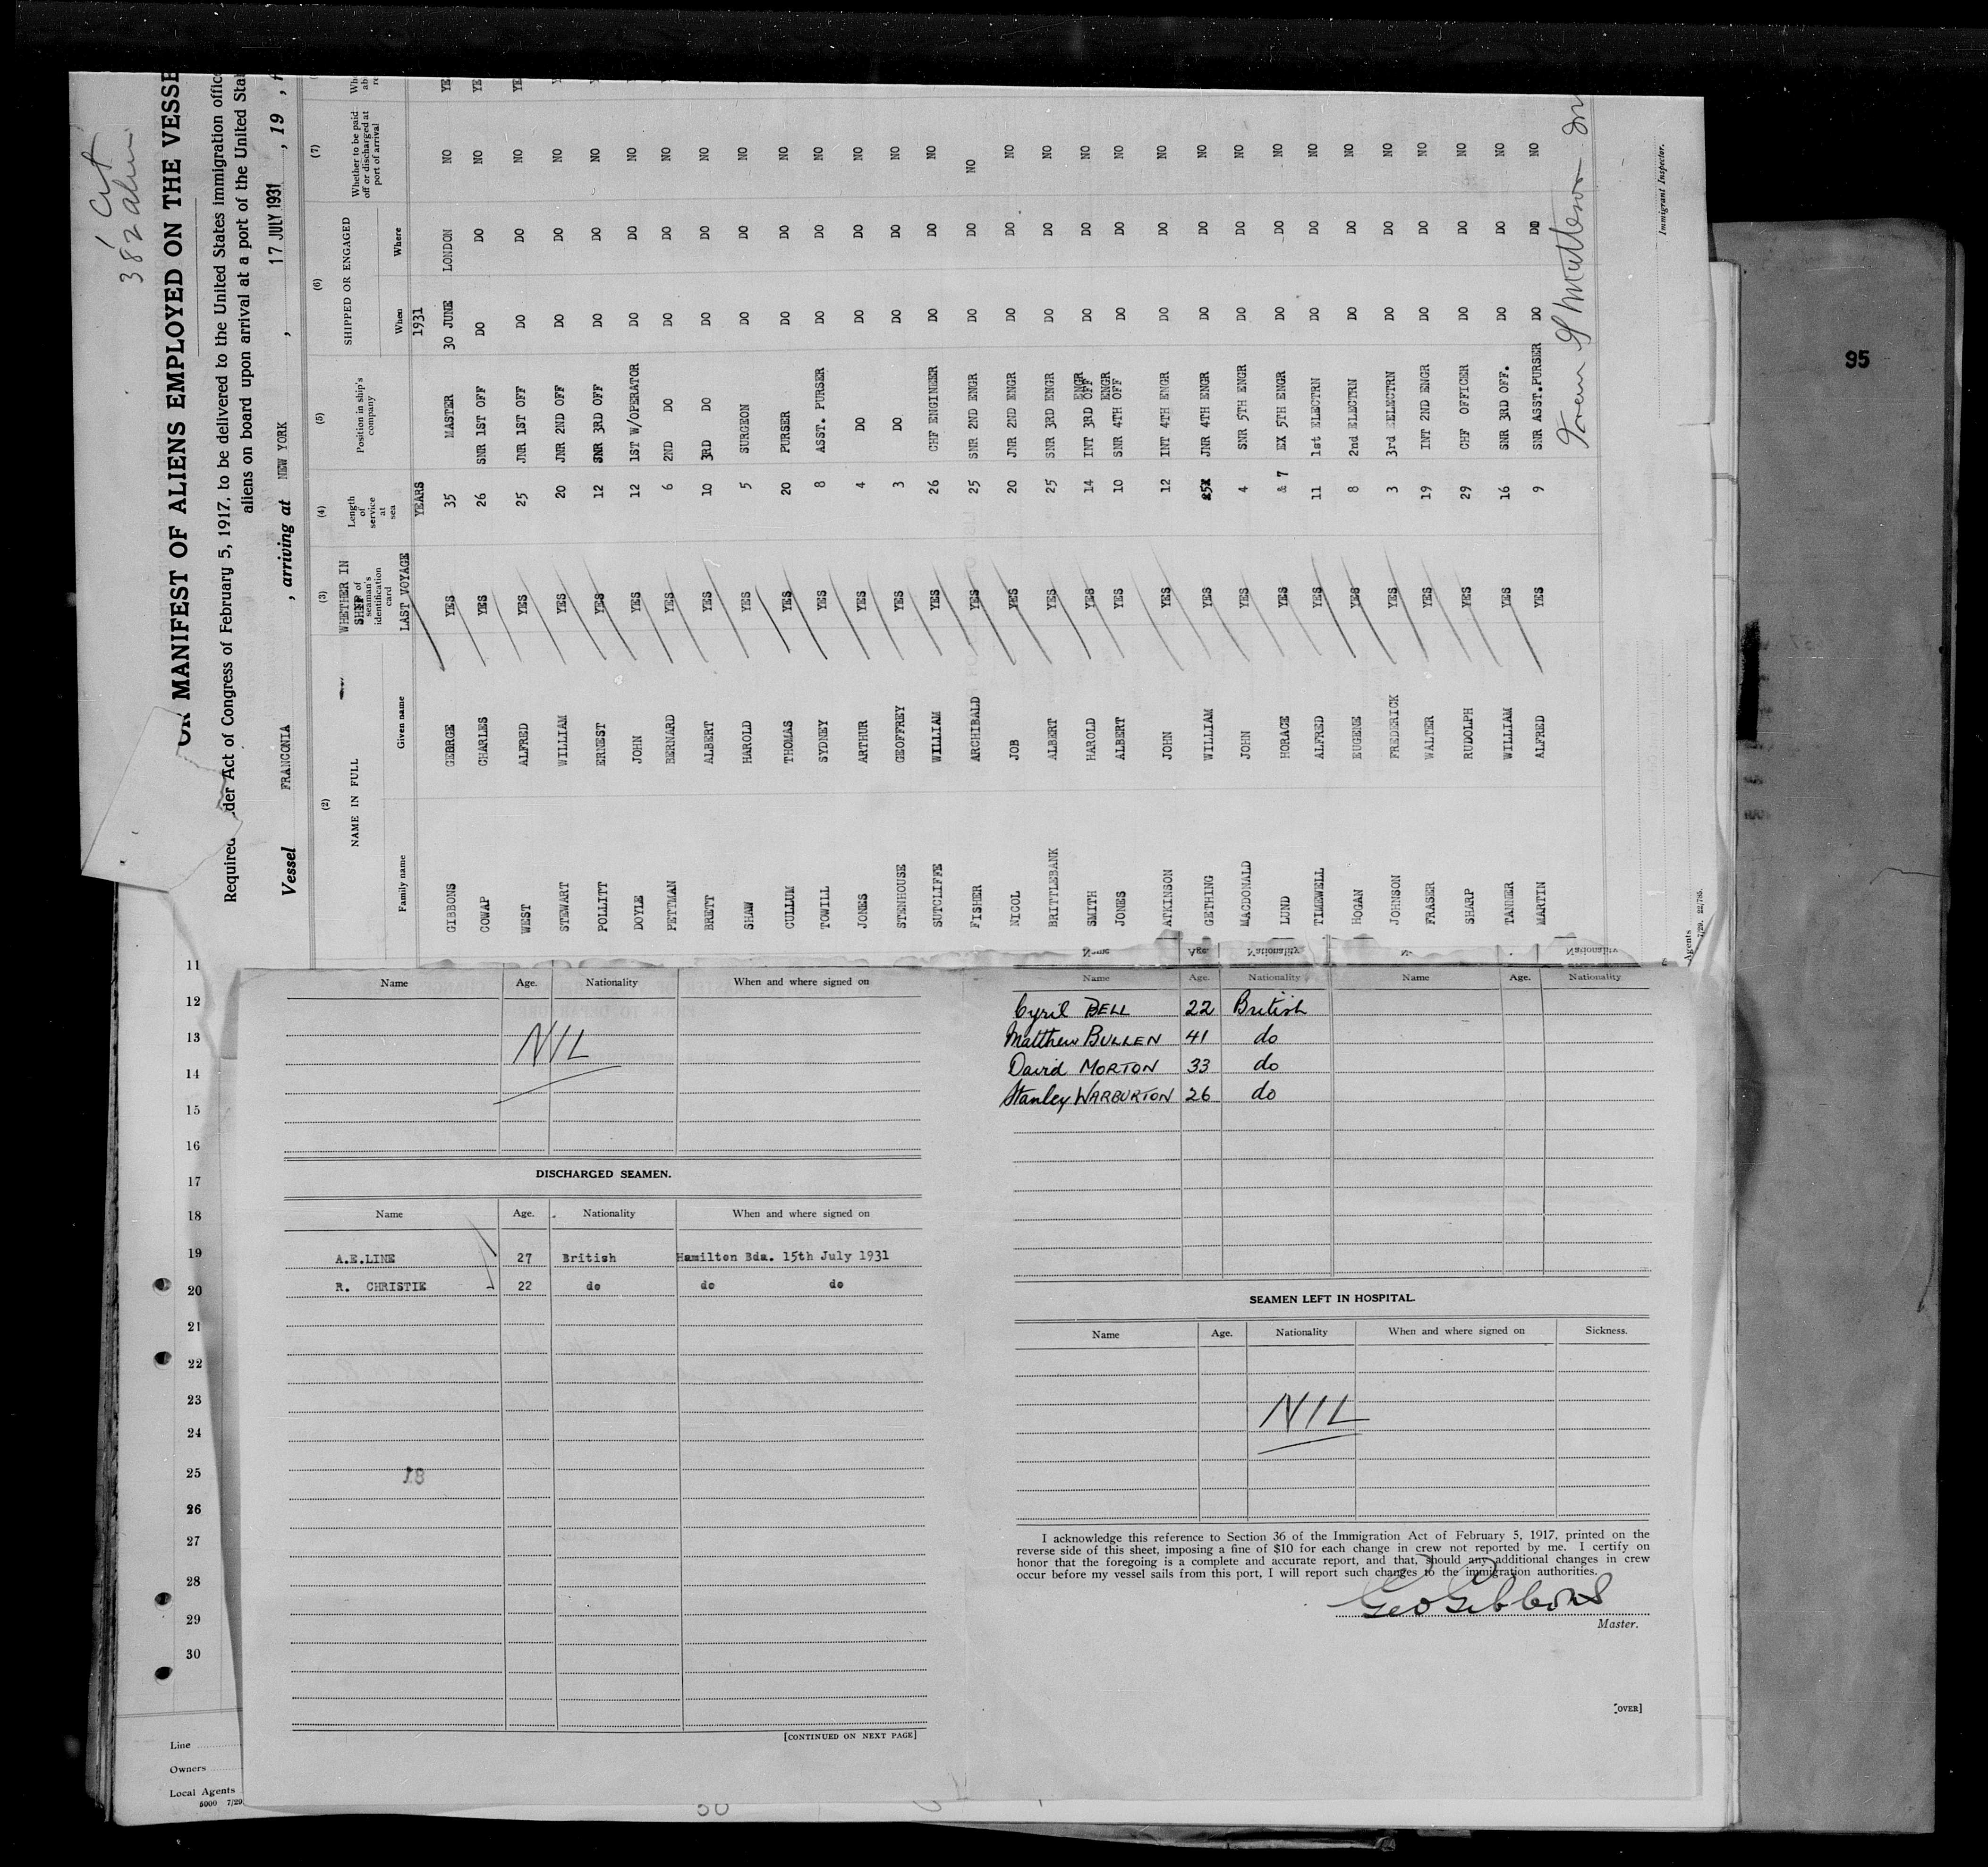 1 Cit
382 alien
OR MANIFEST OF ALIENS EMPLOYED ON THE VESSE
Required der Act of Congress of February 5, 1917, to be delivered to the United States immigration offic
aliens on board upon arrival at a port of the United Stat
Vessel FRANCONIA , arriving at NEW YORK , 17 JULY 1931 , 19 ,
(2) (3) (4) (5) (6) (7)
NAME IN FULL WHETHER IN SHIP of seaman's identification card LAST VOYAGE Length of service at sea Position in ship's company SHIPPED OR ENGAGED Whether to be paid off or discharged at port of arrival
Family name Given name YEARS When Where
1931
GIBBONS GEORGE YES 35 MASTER 30 JUNE LONDON NO YE
COWAP CHARLES YES 26 SNR 1ST OFF DO DO NO YE
WEST ALFRED YES 25 JNR 1ST OFF DO DO NO YE
STEWART WILLIAM YES 20 JNR 2ND OFF DO DO NO Y
POLLITT ERNEST YES 12 SNR 3RD OFF DO DO NO Y
DOYLE JOHN YES 12 1ST W/OPERATOR DO DO NO Y
PETTMAN BERNARD YES 6 2ND DO DO DO NO
BRETT ALBERT YES 10 3RD DO DO DO NO
SHAW HAROLD YES 5 SURGEON DO DO NO
CULLUM THOMAS YES 20 PURSER DO DO NO
TOWILL SYDNEY YES 8 ASST. PURSER DO DO NO
JONES ARTHUR YES 4 DO DO DO NO
STENHOUSE GEOFFREY YES 3 DO DO DO NO
SUTCLIFFE WILLIAM YES 26 CHF ENGINEER DO DO NO
FISHER ARCHIBALD YES 25 SNR 2ND ENGR DO DO NO
NICOL JOB YES 20 JNR 2ND ENGR DO DO NO
BRITTLEBANK ALBERT YES 25 SNR 3RD ENGR DO DO NO
SMITH HAROLD YES 14 INT 3RD OFF ENGR DO DO NO
JONES ALBERT YES 10 SNR 4TH OFF ENGR DO DO NO
ATKINSON JOHN YES 12 INT 4TH ENGR DO DO NO
GETHING WILLIAM YES JNR 4TH ENGR DO DO NO
MACDONALD JOHN YES 4 SNR 5TH ENGR DO DO NO
LUND HORACE YES 7 EX 5TH ENGR DO DO NO
TIMEWELL ALFRED YES 11 1st ELECTRN DO DO NO
HOGAN EUGENE YES 8 2nd ELECTRN DO DO NO
JOHNSON FREDERICK YES 3 3rd EELECTRN DO DO NO
FRASER WALTER YES 19 INT 2ND ENGR DO DO NO
SHARP RUDOLPH YES 29 CHF OFFICER DO DO NO
TANNER WILLIAM YES 16 SNR 3RD OFF. DO DO NO
MARTIN ALFRED YES 9 SNR ASST.PURSER DO DO NO
Immigrant Inspector.
Agents
7/29. 22/785.
95
11
12
13
14
15
16
17
18
19
20
21
22
23
24
25
26
27
28
29
30
Line
Owners
Local Agents
5000 7/29
Name Age. Nationality When and where signed on
NIL
DISCHARGED SEAMEN.
Name Age. Nationality When and where signed on
A.E.LINE 27 British Hamilton Bda. 15th July 1931
R. CHRISTIE 22 do do do
18
[CONTINUED ON NEXT PAGE]
Name Age. Nationality Nationality
Name Age. Nationality Name Age. Nationality
Cyril BELL 22 British
Matthew BULLEN 41 do
David MORTON 33 do
Stanley WARBURTON 26 do
SEAMEN LEFT IN HOSPITAL.
Name Age. Nationality When and where signed on Sickness.
NIL
I acknowledge this reference to Section 36 of the Immigration Act of February 5, 1917, printed on the
reverse side of this sheet, imposing a fine of $10 for each change in crew not reported by me. I certify on
honor that the foregoing is a complete and accurate report, and that, should any additional changes in crew
occur before my vessel sails from this port, I will report such changes to the immigration authorities.
Geo Gibbons
Master.
[OVER]